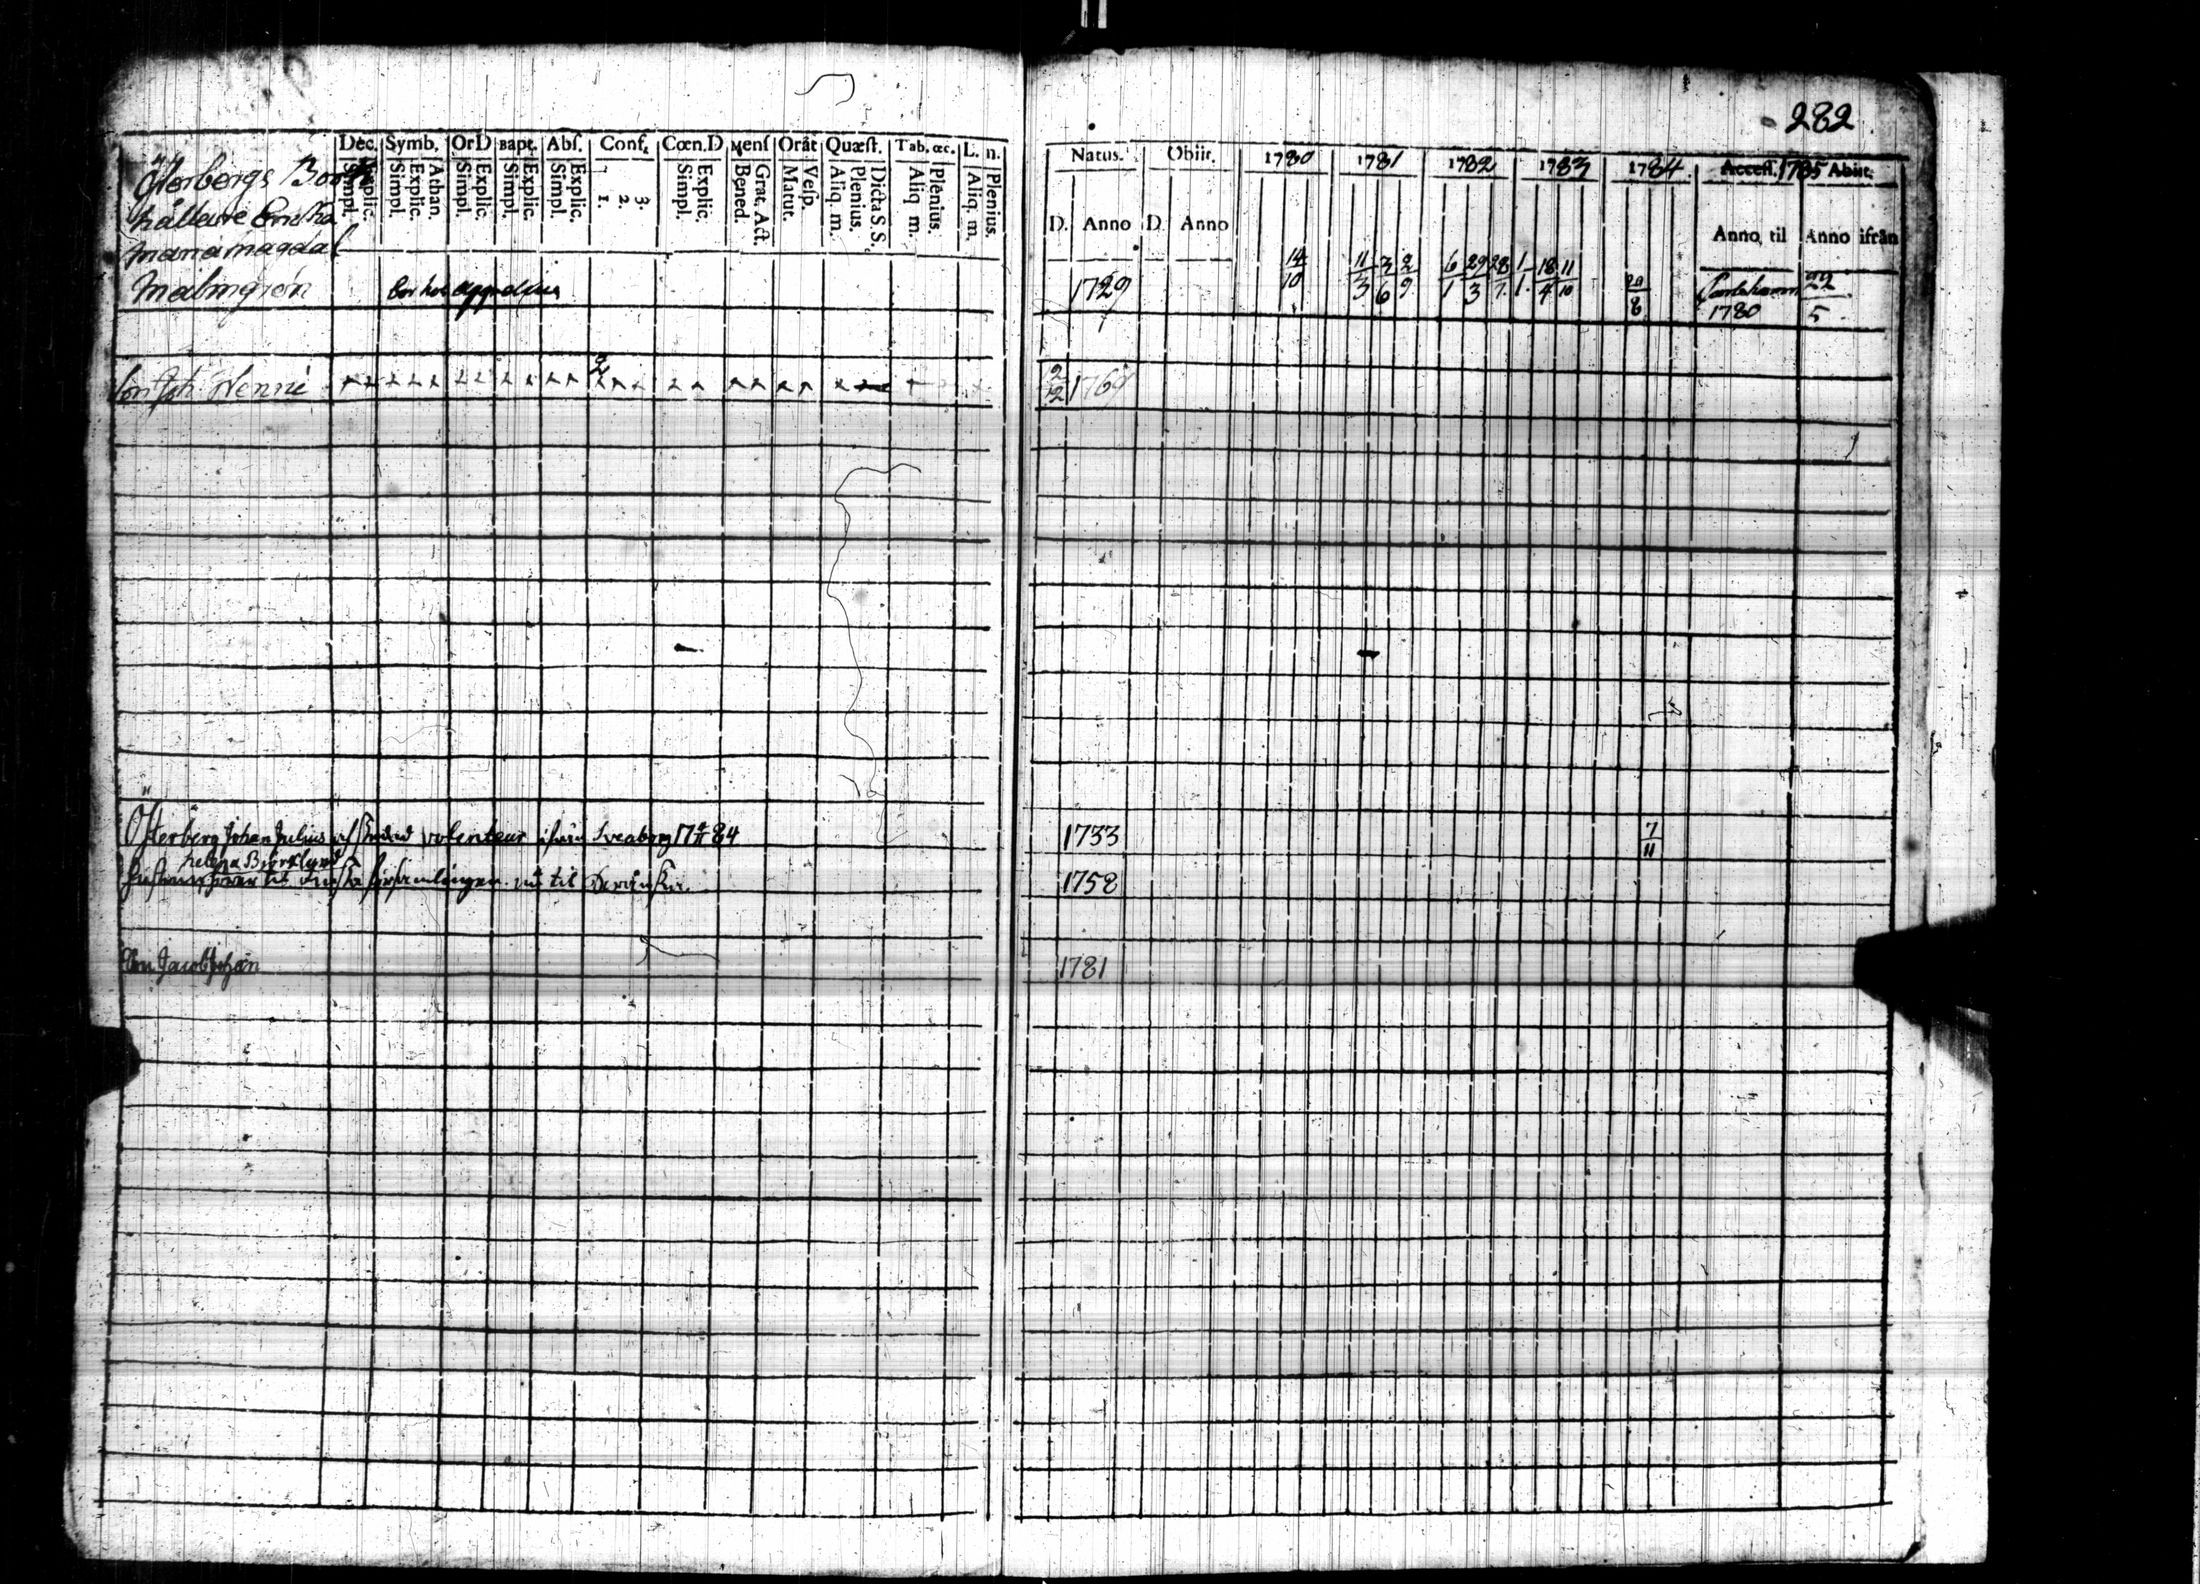 282
Dec. Symb. OrD Bapt. Abſ. Conf. Cœn.D Menſ Orāt Quæſt. Tab. œc. L. n.
Simpl. Explic. Simpl. Explic. Athan. Simpl. Explic. Simpl. Explic. Simpl. Explic. 1. 2. 3. Simpl. Explic. Bened. Grat. Act. Matut. Veſp. Aliq m. Plenius. Dicta S. S. Aliq m. Plenius. Aliq. m. Plenius.
Natus. Obiit. 1780 1781 1782 1783 1784 Acceſſ. 1785 Abiit.
D. Anno D Anno Anno til Anno ifrån
Öſterbergs
hållare Enka
Maria Magdal
Malmgrén
1729 14/10 11/3 3/6 2/9 6/1 29/3 28/7 1/1 18/4 11/10 20/8 Carlshamn 22/5
1780
Son Joh. 2/12 1769
Öſterberg Johan Julius volenteur ifrån Sveaborg 1784 1733 7/11
Helena Björklund
Huſtrun församlingen til 1758
Son Jacob Johan 1781